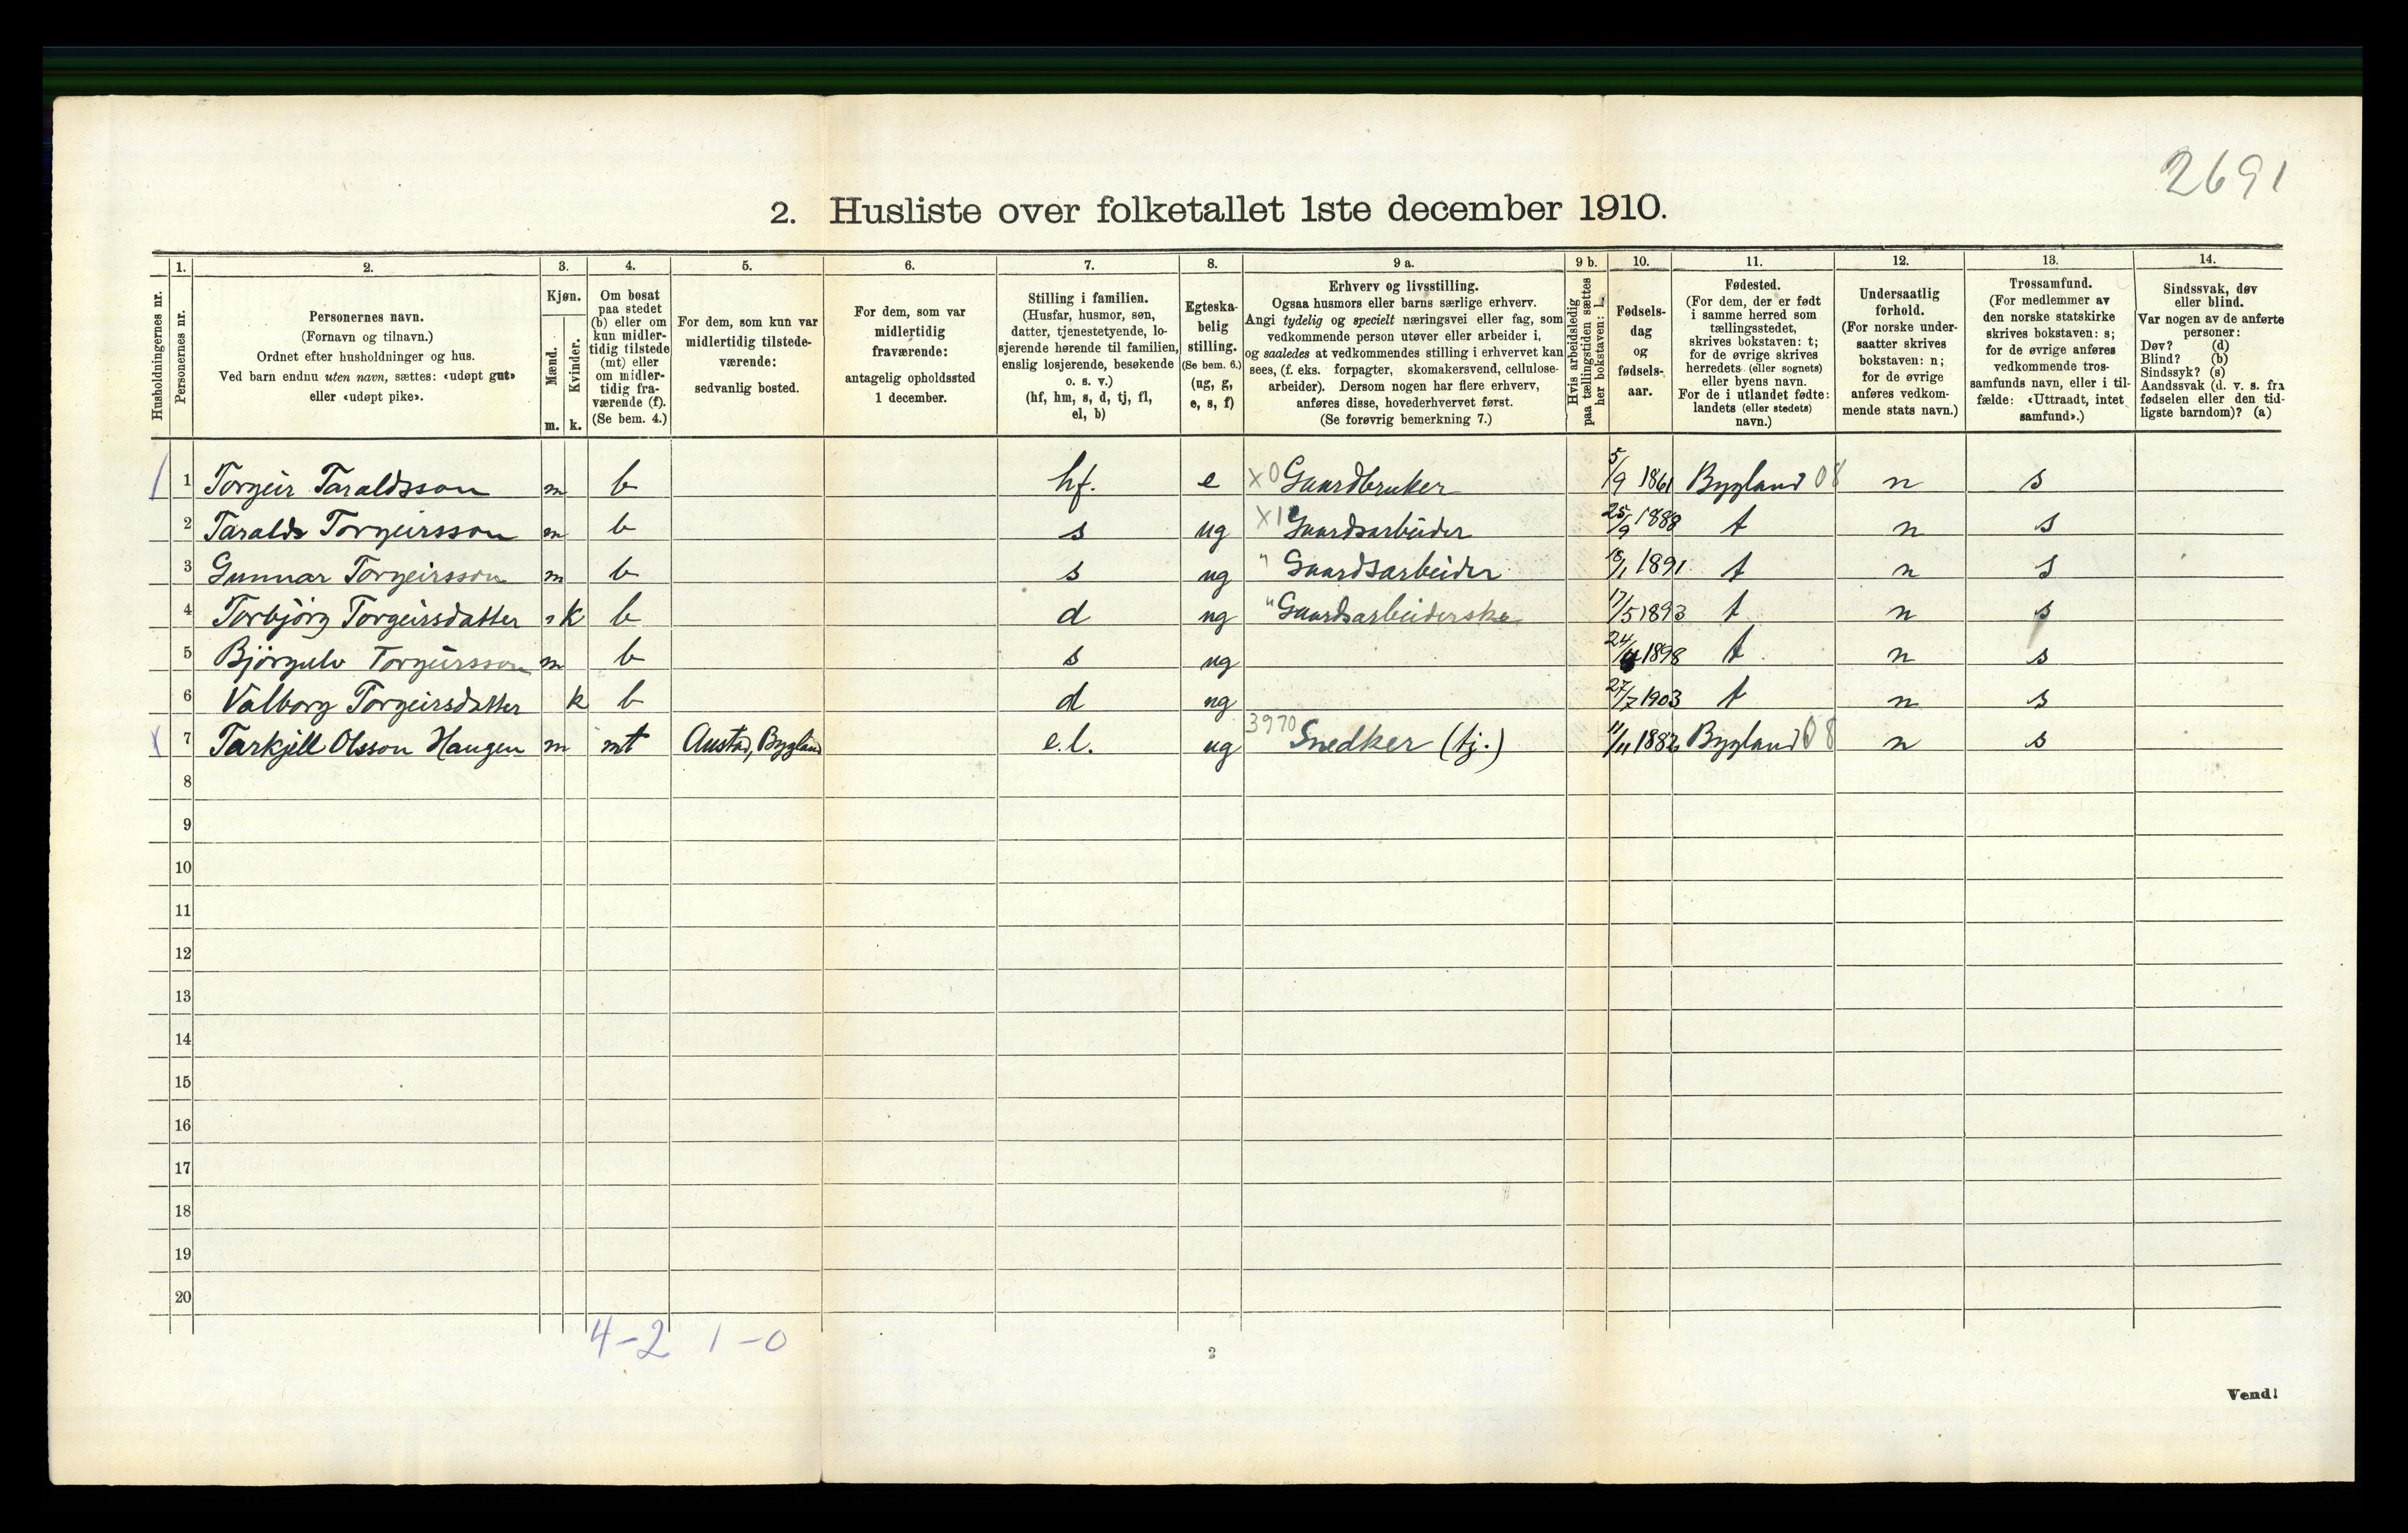 2691
2. Husliste over folketallet 1ste december 1910.
Husholdningernes nr.
1. Personernes nr.
2. Personernes navn. (Fornavn og tilnavn.) Ordnet efter husholdninger og hus. Ved barn endnu uten navn, sættes: «udøpt gut» eller «udøpt pike».
3. Kjøn. Mænd. m. Kvinder. k.
4. Om bosat paa stedet (b) eller om kun midlertidig tilstede (mt) eller om midlertidig fraværende (f). (Se bem. 4.)
5. For dem, som kun var midlertidig tilstedeværende: sedvanlig bosted.
6. For dem, som var midlertidig fraværende: antagelig opholdssted 1 december.
7. Stilling i familien. (Husfar, husmor, søn, datter, tjenestetyende, losjerende hørende til familien, enslig losjerende, besøkende o. s. v.) (hf, hm, s, d, tj, fl, el, b)
8. Egteskabelig stilling. (Se bem. 6.) (ug, g, e, s, f)
9 a. Erhverv og livsstilling. Ogsaa husmors eller barns særlige erhverv. Angi tydelig og specielt næringsvei eller fag, som vedkommende person utøver eller arbeider i, og saaledes at vedkommendes stilling i erhvervet kan sees, (f. eks. forpagter, skomakersvend, cellulosearbeider). Dersom nogen har flere erhverv, anføres disse, hovederhvervet først. (Se forøvrig bemerkning 7.)
9 b. Hvis arbeidsledig paa tællingstiden sættes her bokstaven: l.
10. Fødselsdag og fødselsaar.
11. Fødested. (For dem, der er født i samme herred som tællingsstedet, skrives bokstaven: t; for de øvrige skrives herredets (eller sognets) eller byens navn. For de i utlandet fødte: landets (eller stedets) navn.)
12. Undersaatlig forhold. (For norske undersaatter skrives bokstaven: n; for de øvrige anføres vedkommende stats navn.)
13. Trossamfund. (For medlemmer av den norske statskirke skrives bokstaven: s; for de øvrige anføres vedkommende trossamfunds navn, eller i tilfælde: «Uttraadt, intet samfund».)
14. Sindssvak, døv eller blind. Var nogen av de anførte personer: Døv? (d) Blind? (b) Sindssyk? (s) Aandssvak (d. v. s. fra fødselen eller den tidligste barndom)? (a)
1 Torgeir Taraldsson m b hf. e X0 Gaardbruker 5/9 1861 Bygland 08 n s
2 Taralds Torgeirsson m b s ug X1 Gaardsarbeider 25/9 1888 t n s
3 Gunnar Torgeirsson m b s ug " Gaardsarbeider 1891 t n s
4 Torbjörg Torgeirsdatter k b d ug " Gaardsarbeiderske 17/5 1893 t n s
5 Björgulv Torgeirsson m b s ug 1898 t n s
6 Valborg Torgeirsdatter k b d ug 27/7 1903 t n s
7 Tarkjell Olsson Haugen m mt Austad, Bygland e.l. ug 3970 Snedker (tj.) 11/11 1882 Bygland 08 n s
8
9
10
11
12
13
14
15
16
17
18
19
20
4-2 1-0
2
Vend!